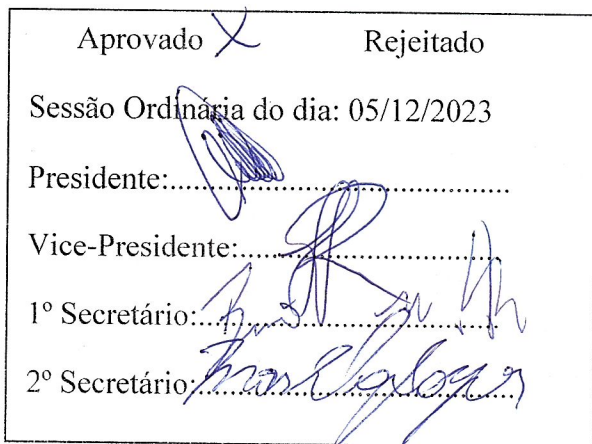 Aprovado X Rejeitado
Sessão Ordinária do dia: 05/12/2023
Presidente:..........................................
Vice-Presidente:.................................
1º Secretário:.....................................
2º Secretário:.....................................